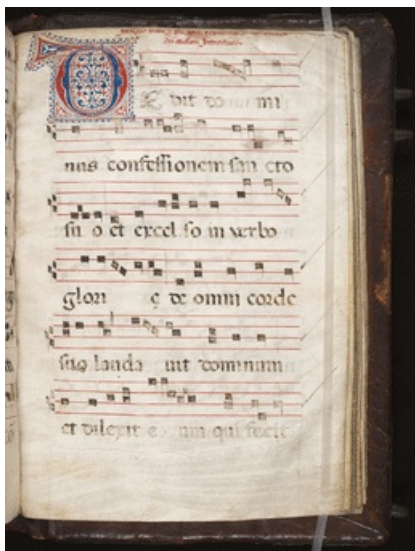 DE dit do mi
nus confessionem san cto
su o et excel so in verbo
glori ę de omni corde
suo lauda uit dominum
et dilexit e um qui fecit